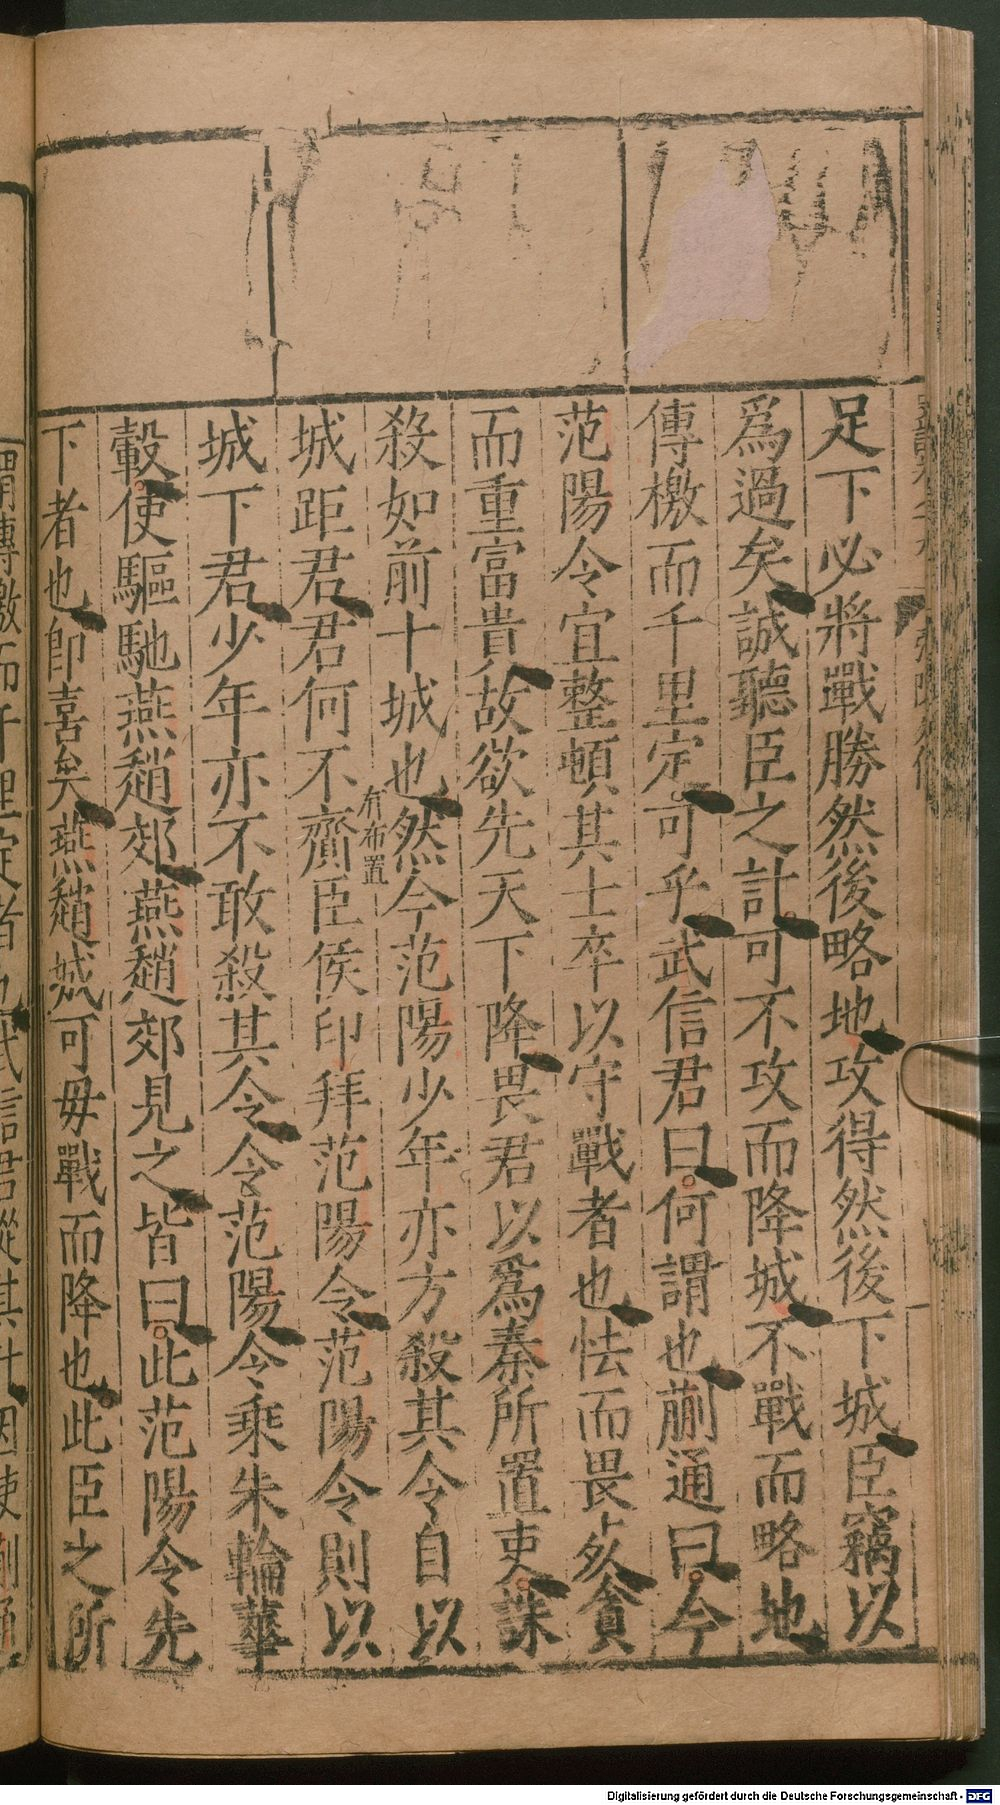 足下必將戰勝然後略地攻得然後下城臣竊以
爲過矣誠聽臣之計可不攻而降城不戰而略地
傳檄而千里定可乎武信君曰何謂也蒯通曰今
范陽令宜整頓其士卒以守戰者也怯而畏死貪
而重富貴故欲先天下降畏君以爲秦所置吏誅
殺如前十城也然今范陽少年亦方殺其令自以
有布置
城距君君何不齎臣侯印拜范陽令范陽令則以
城下君少年亦不敢殺其令令范陽令乘朱輪華
轂使驅馳燕趙郊燕趙郊見之皆曰此范陽令先
下者也卽喜矣燕趙城可毋戰而降也此臣之所
謂傳檄而千里定者也武信君從其計因使蒯通
Digitalisierung gefördert durch die Deutsche Forschungsgemeinschaft - DFG